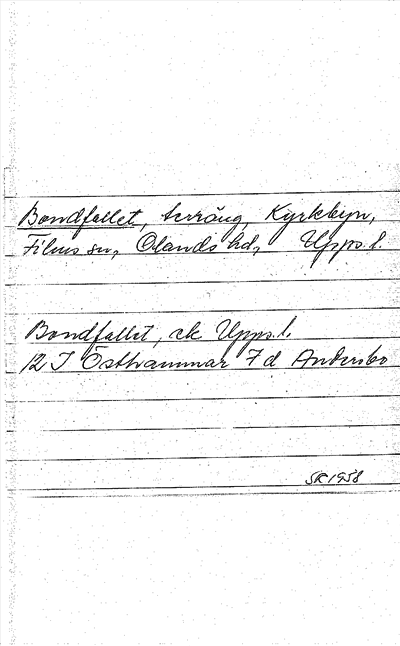 Bondfallet, terräng, Kyrkbyn,
Films sn, Olands hd, Upps. l.
Bondfallet, ek Upps. l.
12 I Östhammar 7 d Andersbo
SK 1958